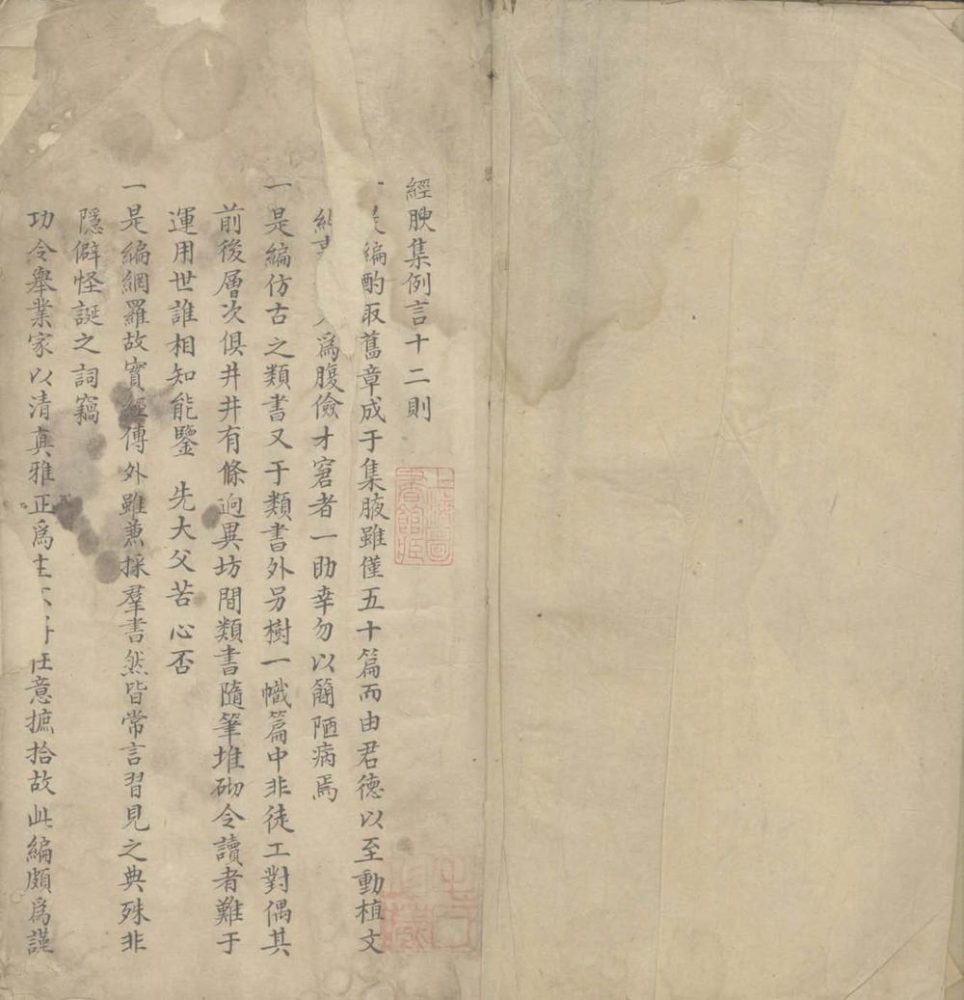 經腴集例言十二則
一是編酌取舊章成于集腋雖僅五十篇而由君德以至動植文
為腹儉才窘者一助幸勿以簡陋病焉
一是編仿古之類書又于類書外另樹一幟篇中非徒工對偶其
前後層次俱井井有條迥異坊間類書隨筆堆砌令讀者難于
運用世誰相知能鑒 先大父苦心否
一是編網羅故實經傳外雖兼採羣書然皆常言習見之典殊非
隱僻怪誕之詞竊
功令舉業家以清真雅正為主任意摭拾故此編頗為謹
上海圖書館藏